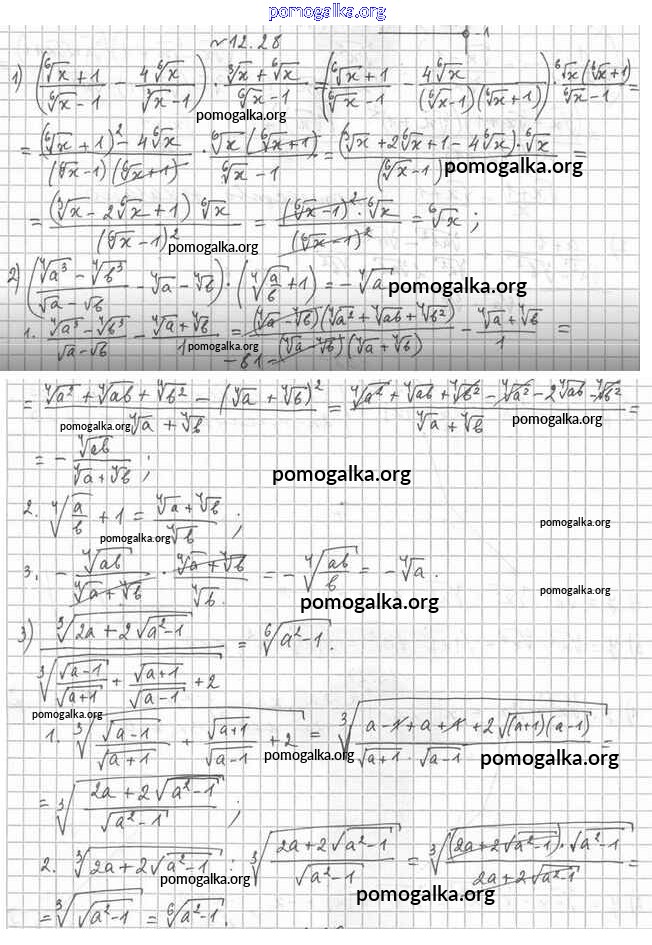 pomogalka.org
№12.28
1) ((⁶√x + 1)/(⁶√x - 1) - 4⁶√x/(³√x - 1)) · (³√x + ⁶√x)/(⁶√x - 1) = ((⁶√x + 1)/(⁶√x - 1) - 4⁶√x/((⁶√x-1)(⁶√x+1))) · ⁶√x(⁶√x+1)/(⁶√x - 1) =
pomogalka.org
= ((⁶√x + 1)² - 4⁶√x)/((⁶√x-1)(⁶√x+1)) · ⁶√x(⁶√x+1)/(⁶√x - 1) = (³√x + 2⁶√x + 1 - 4⁶√x)·⁶√x/(⁶√x - 1) =
pomogalka.org
= (³√x - 2⁶√x + 1) ⁶√x/(⁶√x - 1)² = (⁶√x - 1)²·⁶√x/(⁶√x - 1)² = ⁶√x ;
pomogalka.org
2) ((⁴√a³ - ⁴√b³)/(√a - √b) - ⁴√a - ⁴√b) · (⁴√(a/b) + 1) = - ⁴√a
pomogalka.org
1. (⁴√a³ - ⁴√b³)/(√a - √b) - (⁴√a + ⁴√b)/1 = (⁴√a - ⁴√b)(⁴√a² + ⁴√ab + ⁴√b²)/((⁴√a - ⁴√b)(⁴√a + ⁴√b)) - (⁴√a + ⁴√b)/1 =
pomogalka.org
- 61 -
= (⁴√a² + ⁴√ab + ⁴√b² - (⁴√a + ⁴√b)²)/(⁴√a + ⁴√b) = (⁴√a² + ⁴√ab + ⁴√b² - ⁴√a² - 2⁴√ab - ⁴√b²)/(⁴√a + ⁴√b) =
pomogalka.org pomogalka.org
= - ⁴√ab/(⁴√a + ⁴√b) ;
pomogalka.org
2. ⁴√(a/b) + 1 = (⁴√a + ⁴√b)/⁴√b ;
pomogalka.org
pomogalka.org
3. - ⁴√ab/(⁴√a + ⁴√b) · (⁴√a + ⁴√b)/⁴√b = - ⁴√(ab/b) = - ⁴√a .
pomogalka.org
pomogalka.org
3) ³√(2a + 2√(a²-1))/³√(√(a-1)/√(a+1) + √(a+1)/√(a-1) + 2) = ⁶√(a²-1).
pomogalka.org
1. ³√(√(a-1)/√(a+1) + √(a+1)/√(a-1) + 2) = ³√((a - 1 + a + 1 + 2√((a+1)(a-1)))/(√(a+1) · √(a-1))) =
pomogalka.org pomogalka.org
= ³√((2a + 2√(a²-1))/√(a²-1)) ;
2. ³√(2a + 2√(a²-1)) : ³√((2a + 2√(a²-1))/√(a²-1)) = ³√((2a + 2√(a²-1))·√(a²-1)/(2a + 2√(a²-1))) =
pomogalka.org
= ³√√(a²-1) = ⁶√(a²-1).
pomogalka.org